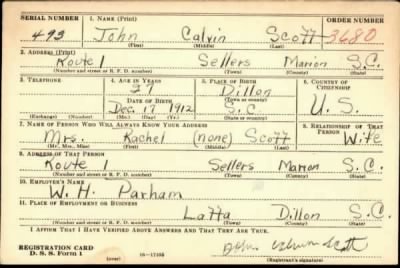 SERIAL NUMBER 1. NAME (Print) ORDER NUMBER
493 John Calvin Scott 3680
(First) (Middle) (Last)
2. ADDRESS (Print)
Route 1 Sellers Marion S.C.
(Number and street or R. F. D. number) (Town) (County) (State)
3. TELEPHONE 4. AGE IN YEARS 5. PLACE OF BIRTH 6. COUNTRY OF CITIZENSHIP
27 Dillon
DATE OF BIRTH (Town or county)
Dec. 17 1912 S.C. U.S.
(Exchange) (Number) (Mo.) (Day) (Yr.) (State or country)
7. NAME OF PERSON WHO WILL ALWAYS KNOW YOUR ADDRESS 8. RELATIONSHIP OF THAT PERSON
Mrs. Rachel (none) Scott Wife
(Mr., Mrs., Miss) (First) (Middle) (Last)
9. ADDRESS OF THAT PERSON
Route 1 Sellers Marion S.C.
(Number and street or R. F. D. number) (Town) (County) (State)
10. EMPLOYER'S NAME
W. H. Parham
11. PLACE OF EMPLOYMENT OR BUSINESS
Latta Dillon S.C.
(Number and street or R. F. D. number) (Town) (County) (State)
I AFFIRM THAT I HAVE VERIFIED ABOVE ANSWERS AND THAT THEY ARE TRUE.
REGISTRATION CARD
D. S. S. Form 1 16—17105 John Calvin Scott
(Registrant's signature)